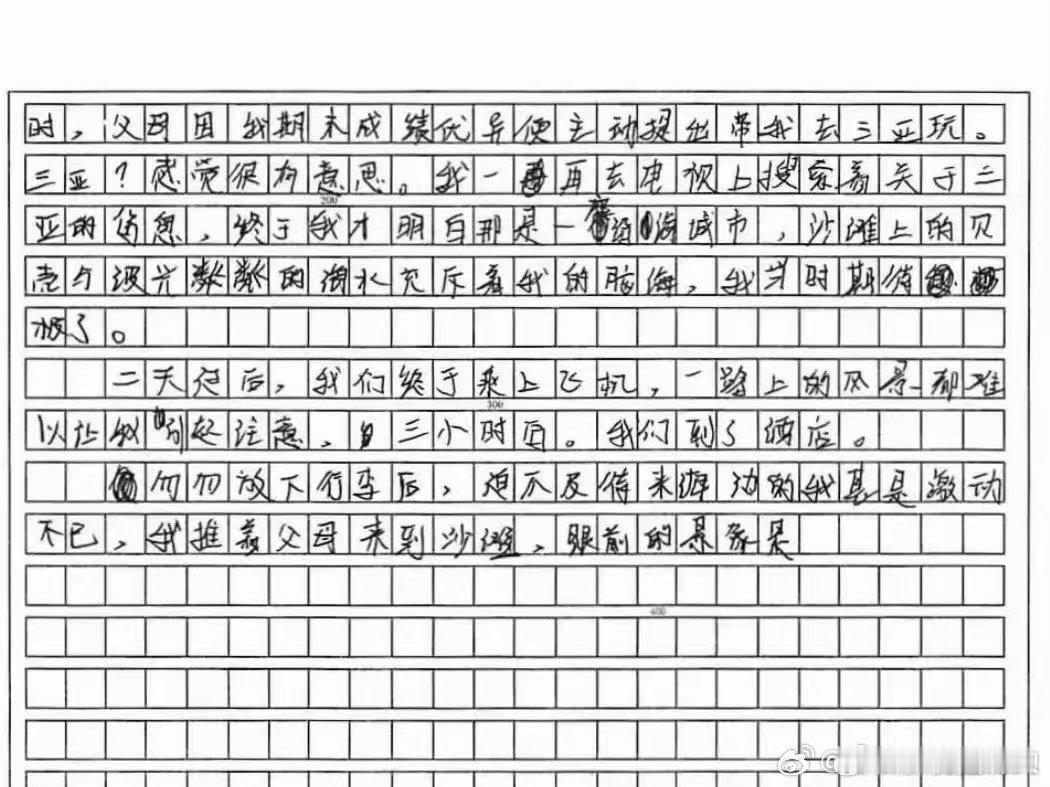 时，父母因我期末成绩优异便主动提出带我去三亚玩。
三亚？感觉很有意思。我一再去电视上搜索着关于三
200
亚的信息，终于我才明白那是一座沿海城市，沙滩上的贝
壳与波光粼粼的海水充斥着我的脑海，我当时期待
极了。
二天过后，我们终于乘上飞机，一路上的风景都难
300
以让我引起注意，三小时后。我们到了酒店。
匆匆放下行李后，迫不及待来海边的我甚是激动
不已，我推着父母来到沙滩，眼前的景象是
400